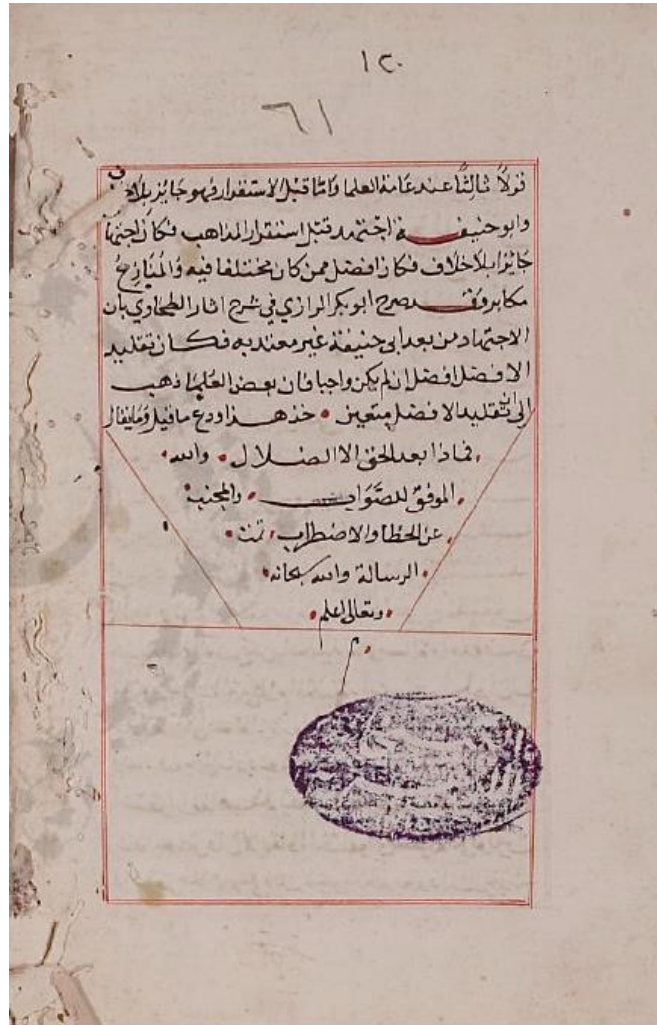 ١٢٠
٦١
قولاً ثالثاً عند عامة العلما واما قبل الاستقرار فهو جايز بلا خلاف
وابو حنيفة اجتهد قبل استقرار المذاهب فكان اجتهاده
جايزا بلا خلاف فكان افضل ممن كان مختلفا فيه والمنازع
مكابر وقد صرح ابو بكر الرازي في شرح اثار الطحاوي بان
الاجتهاد من بعد ابى حنيفة غير معتد به فكان تقليد
الافضل افضل ان لم يكن واجبا فان بعض العلما ذهب
إلى ان تقليد الافضل متعين • خذ هذا ودع ما قيل وما يقال
فماذا بعد الحق الا الضلال • والله •
الموفق للصواب • والمجنب
عن الخطا والاضطراب • تمت •
الرسالة والله سبحانه •
وتعالى اعلم •
م